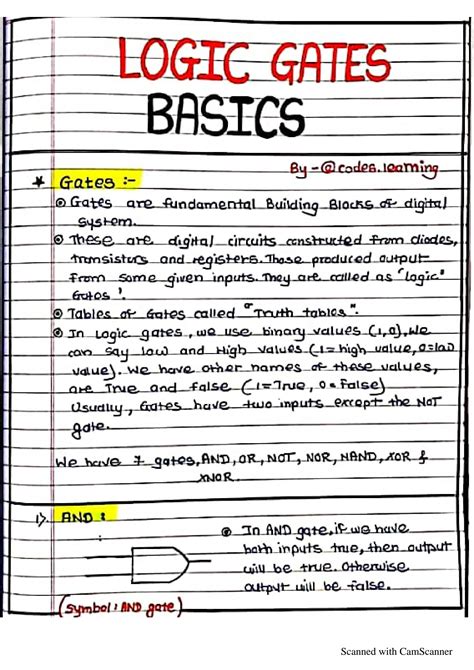 LOGIC GATES
BASICS
By - @codes.learning
* Gates :-
Gates are fundamental Building Blocks of digital
system.
These are digital circuits constructed from diodes,
transistors and registers. Those produced output
from some given inputs. They are called as "logic"
Gates '.
Tables of Gates called "Truth tables".
In logic gates, we use binary values (1,0), We
can say low and High values (1= high value, 0=low
value). We have other names of these values,
are True and false (1=True, 0=false)
Usually, Gates have two inputs except the NOT
gate.
We have 7 gates, AND, OR, NOT, NOR, NAND, XOR &
XNOR.
1). AND :
In AND gate, if we have
both inputs true, then output
will be true. Otherwise
output will be false.
(Symbol: AND gate)
Scanned with CamScanner